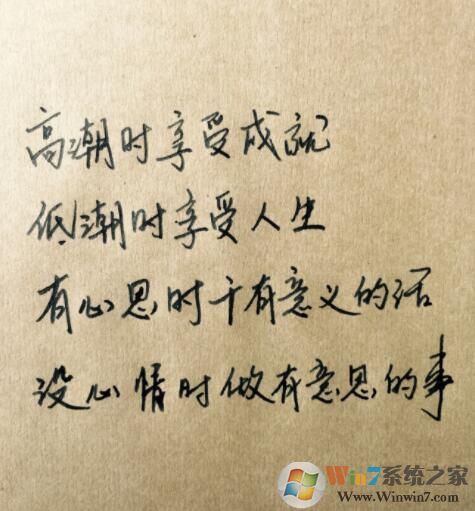 高潮时享受成就
低潮时享受人生
有心思时干有意义的活
没心情时做有意思的事
Win7系统之家
Www.Winwin7.com